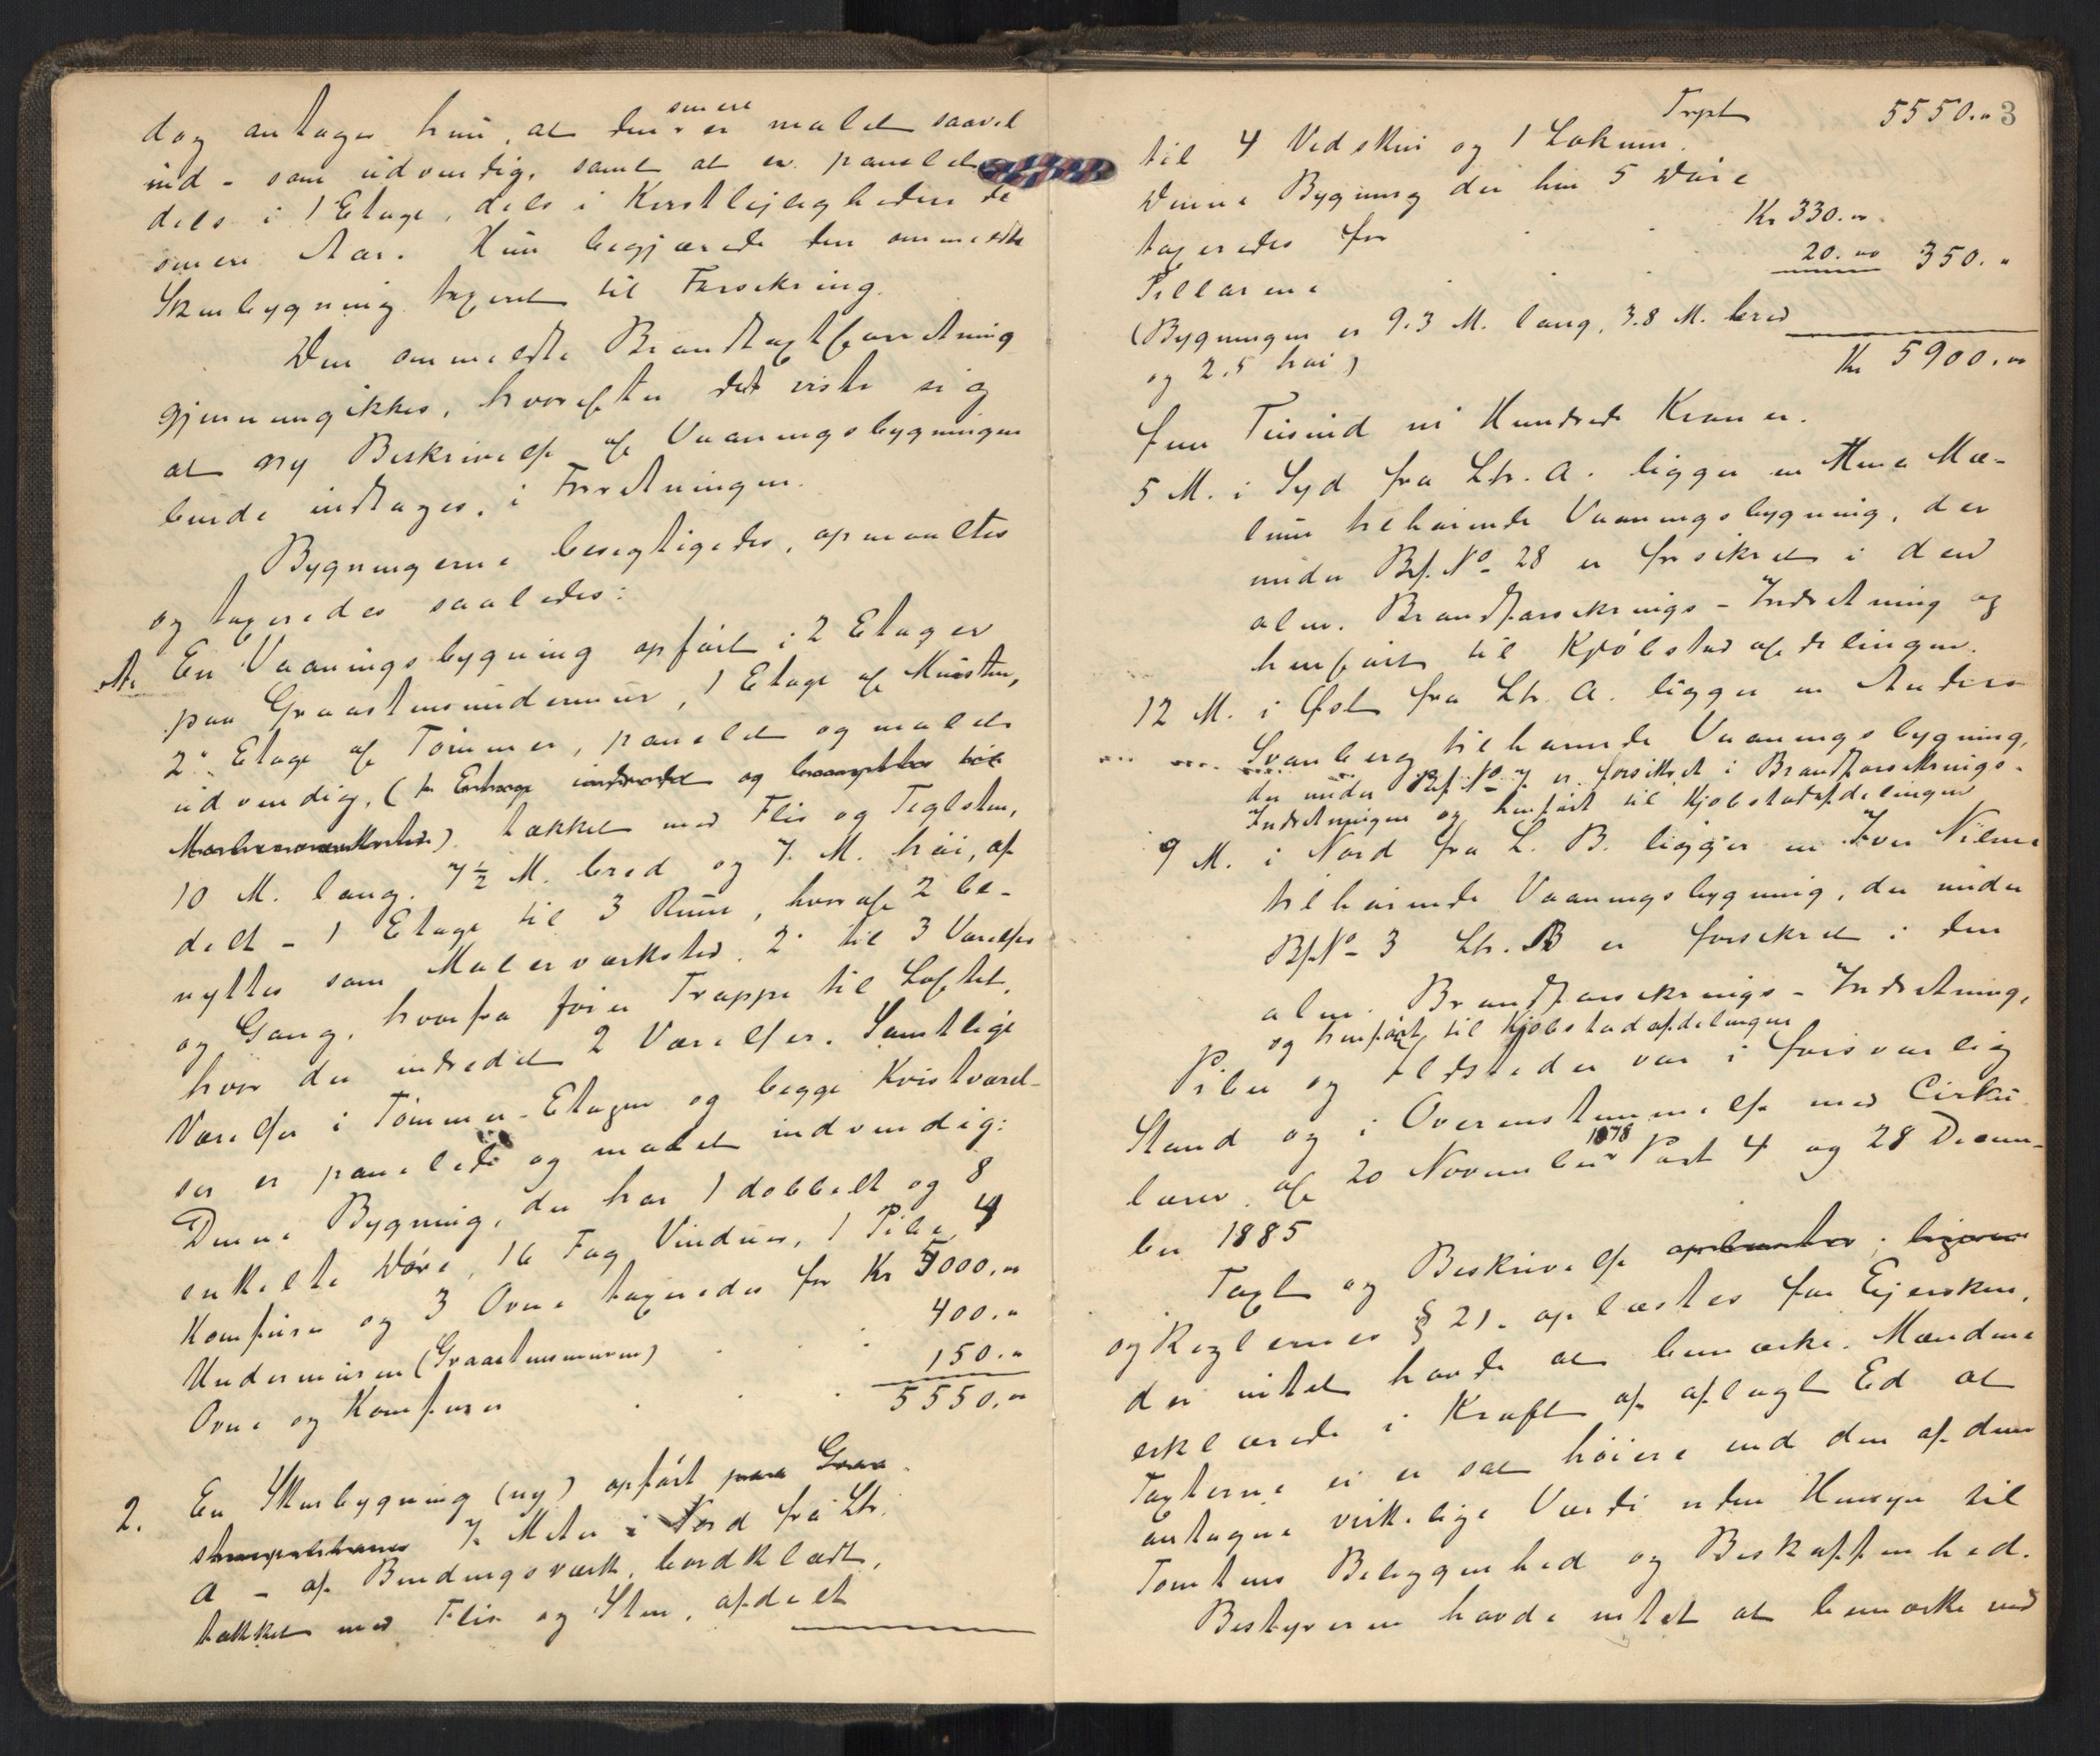 dog antager hun, at den senere er malet saavel
ind - som udvendig, samt at er panelet
dels i 1 Etage, dels i Kvistlejligheden de
senere Aar. Hun begjærede den ommeldte
Skurbygning taxeret til Forsikring.
Den ommeldte Brandtaxtforretning
gjennemgikkes, hvorefter det viste sig
at ny Beskrivelse af Vaaningsbygningen
burde indtages i Forretningen.
Bygningerne besigtigedes, opmaaltes
og taxeredes saaledes:
A. En Vaaningsbygning opført i 2 Etager
paa Graastensundermur, 1 Etage af Mursten,
2. Etage af Tømmer, panelet og malet
udvendig, ( og
) tækket med Flis og Teglsten,
10 M. lang. 7½ M. bred og 7. M. høi, af
delt - 1 Etage til 3 Rum, hvoraf 2 be-
nyttes som Malerværksted. 2. til 3 Værelser
og Gang, hvorfra fører Trappe til Loftet,
hvor der indredet 2 Værelser. Samtlige
Værelser i Tømmer-Etagen og begge Kvistværel-
ser er panelede og malet indvendig:
Denne Bygning, der har 1 dobbelt og 8
enkelte Døre, 16 Fag Vinduer, 1 Pibe, 4
Komfurer og 3 Ovne taxeredes for Kr 5000.00
Undermuren (Graastensmuren) . . 400.00
Ovne og Komfurer . . 150.00
5550.00
2. En Skurbygning (ny) opført paa Graa
7 Meter i Nord fra Ltr.
A - af Bindingsværk, bordklædt,
tækket med Flis og Sten, afdelt
Trspt 5550.00 3
til 4 Vedskur og 1 Lokum.
Denne Bygning der har 5 Døre
taxeredes for . . Kr 330.00
Pillarene . . 20.00 350.00
(Bygningen er 9.3 M. lang, 3.8 M. bred
og 2.5 høi) Kr 5900.00
fem Tusind ni Hundrede Kroner.
5 M. i Syd fra Ltr. A. ligger en
tilhørende Vaaningsbygning, der
under Bf. No 28 er forsikret i den
alm. Brandforsikrings-Indretning og
henført til Kjøbstadafdelingen.
12 M. i Øst fra Ltr. A. ligger en Anders
Svanberg tilhørende Vaaningsbygning,
der under Bf. No 7 er forsikret i Brandforsikrings-
Indretningen og henført til Kjøbstadafdelingen
9 M. i Nord fra L. B. ligger en Iver
tilhørende Vaaningsbygning, der under
Bf. No 3 Ltr. B er forsikret i den
alm. Brandforsikrings-Indretning,
og henført til Kjøbstadafdelingen
Piber og Ildsteder var i forsvarlig
Stand og i Overenstemmelse med Cirku-
lærer af 20 November 1878 Post 4 og 28 Decem-
ber 1885
Taxt og Beskrivelse
og Reglernes § 21. oplæstes for Ejersken,
der intet havde at bemærke. Mændene
erklærede i Kraft af aflagt Ed at
Taxterne ei er sat høiere end den af dem
antagne virkelige Værdi uden Hensyn til
Tomtens Beliggenhed og Beskaffenhed.
Bestyreren havde intet at bemærke ved